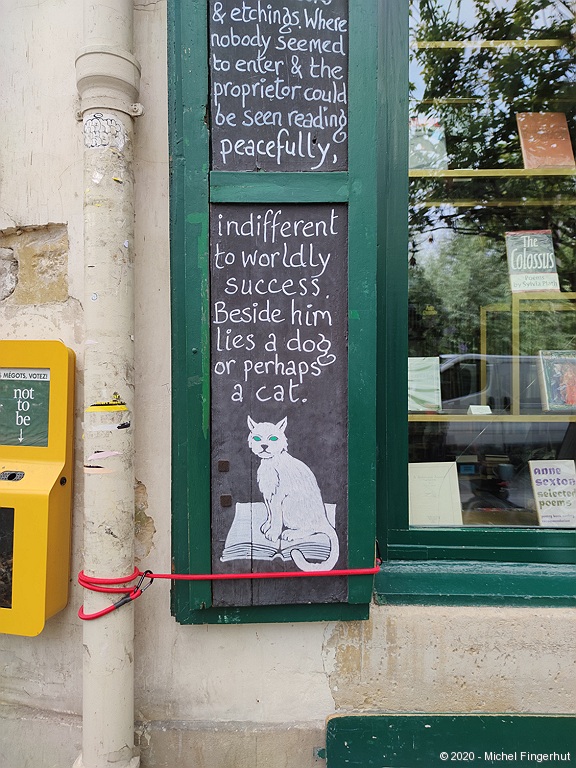 & etchings. Where
nobody seemed
to enter & the
proprietor could
be seen reading
peacefully,
indifferent
to worldly
success.
Beside him
lies a dog
or perhaps
a cat.
The
Colossus
Poems
by Sylvia Plath
anne
sexton
selected
poems
MÉGOTS, VOTEZ!
not
to
be
© 2020 - Michel Fingerhut